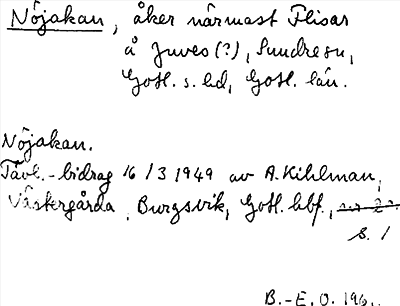 Nöjakan, åker närmast Flisar
å Juves (?), Sundre sn,
Gotl. s. hd, Gotl. län.
Nöjakan.
Tävl.-bidrag 16/3 1949 av A. Kihlman,
Västergårda, Burgsvik, Gotl. hbf.,
s. 1
B.-E. O. 196